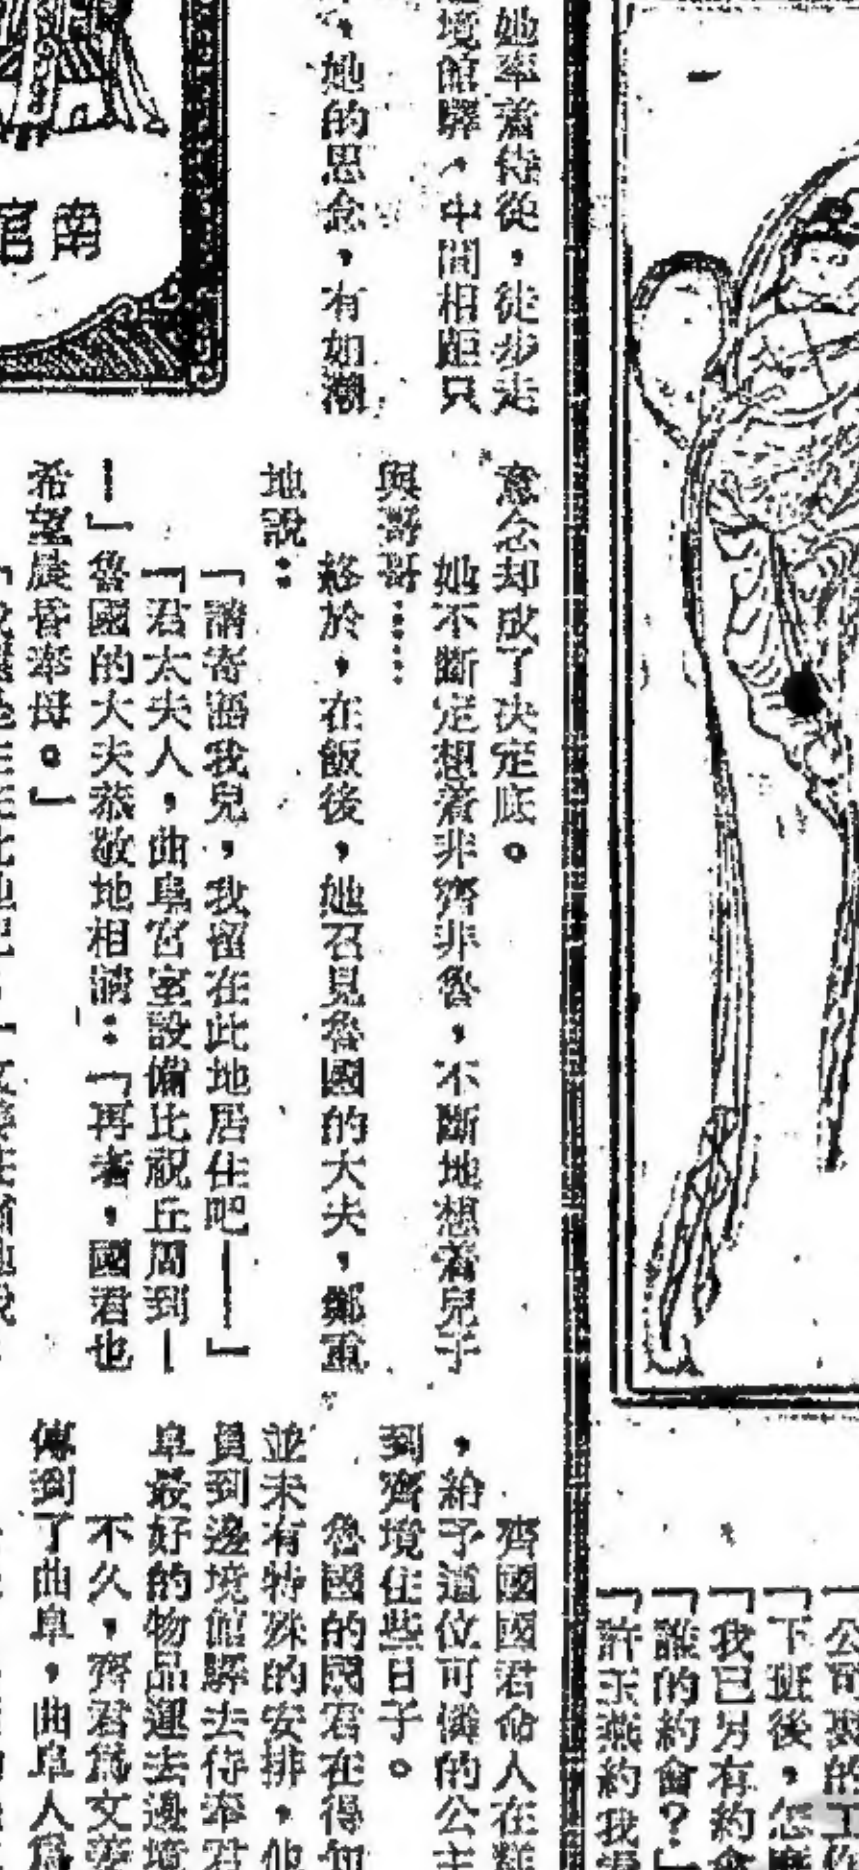 她率着侍從，徒步走
境館驛，中間相距只
她的思念，有如潮
南宮
意念却成了决定底。
她不斷定想着非齊非魯，不斷地想着兒子
與哥哥……
終於，在飯後，她召見魯國的大夫，鄭重
地說：
「請寄語我兒，我留在此地居住吧——」
「君太夫人，曲阜宮室設備比祝丘周到—
—」魯國的大夫恭敬地相請：「再者，國君也
希望晨昏奉母。」
齊國國君命人在
，給予這位可憐的公主
到齊境住些日子。
魯國的國君在得知
並未有特殊的安排，他
員到邊境館驛去侍奉君
阜最好的物品運去邊境
不久，齊君爲文姜
傳到了曲阜，曲阜人爲
公司裏的工作
「下班後，怎麼
「我已另有約會
「誰的約會？」
「許玉燕約我